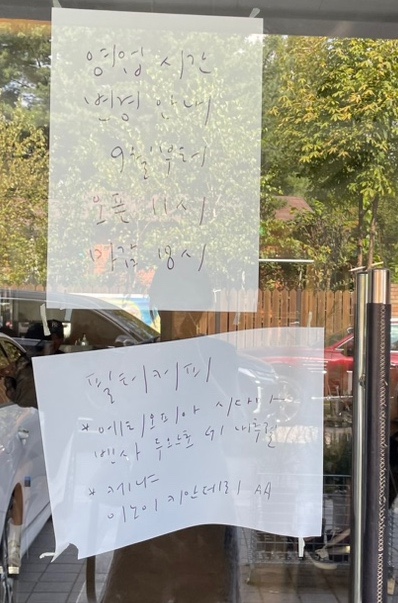 영업 시간
변경 안내
9월부터
오픈 11시
마감 18시
필터커피
* 에티오피아 시다마
벤사 부리소 G1 내추럴
* 케냐
이노이 키안데리 AA